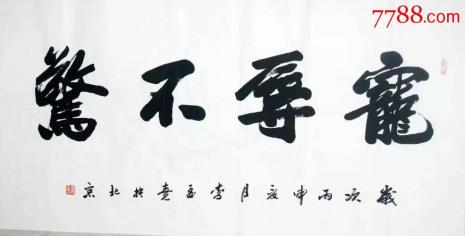 7788.com
寵辱不驚
歲次丙申夏月李堯於北京